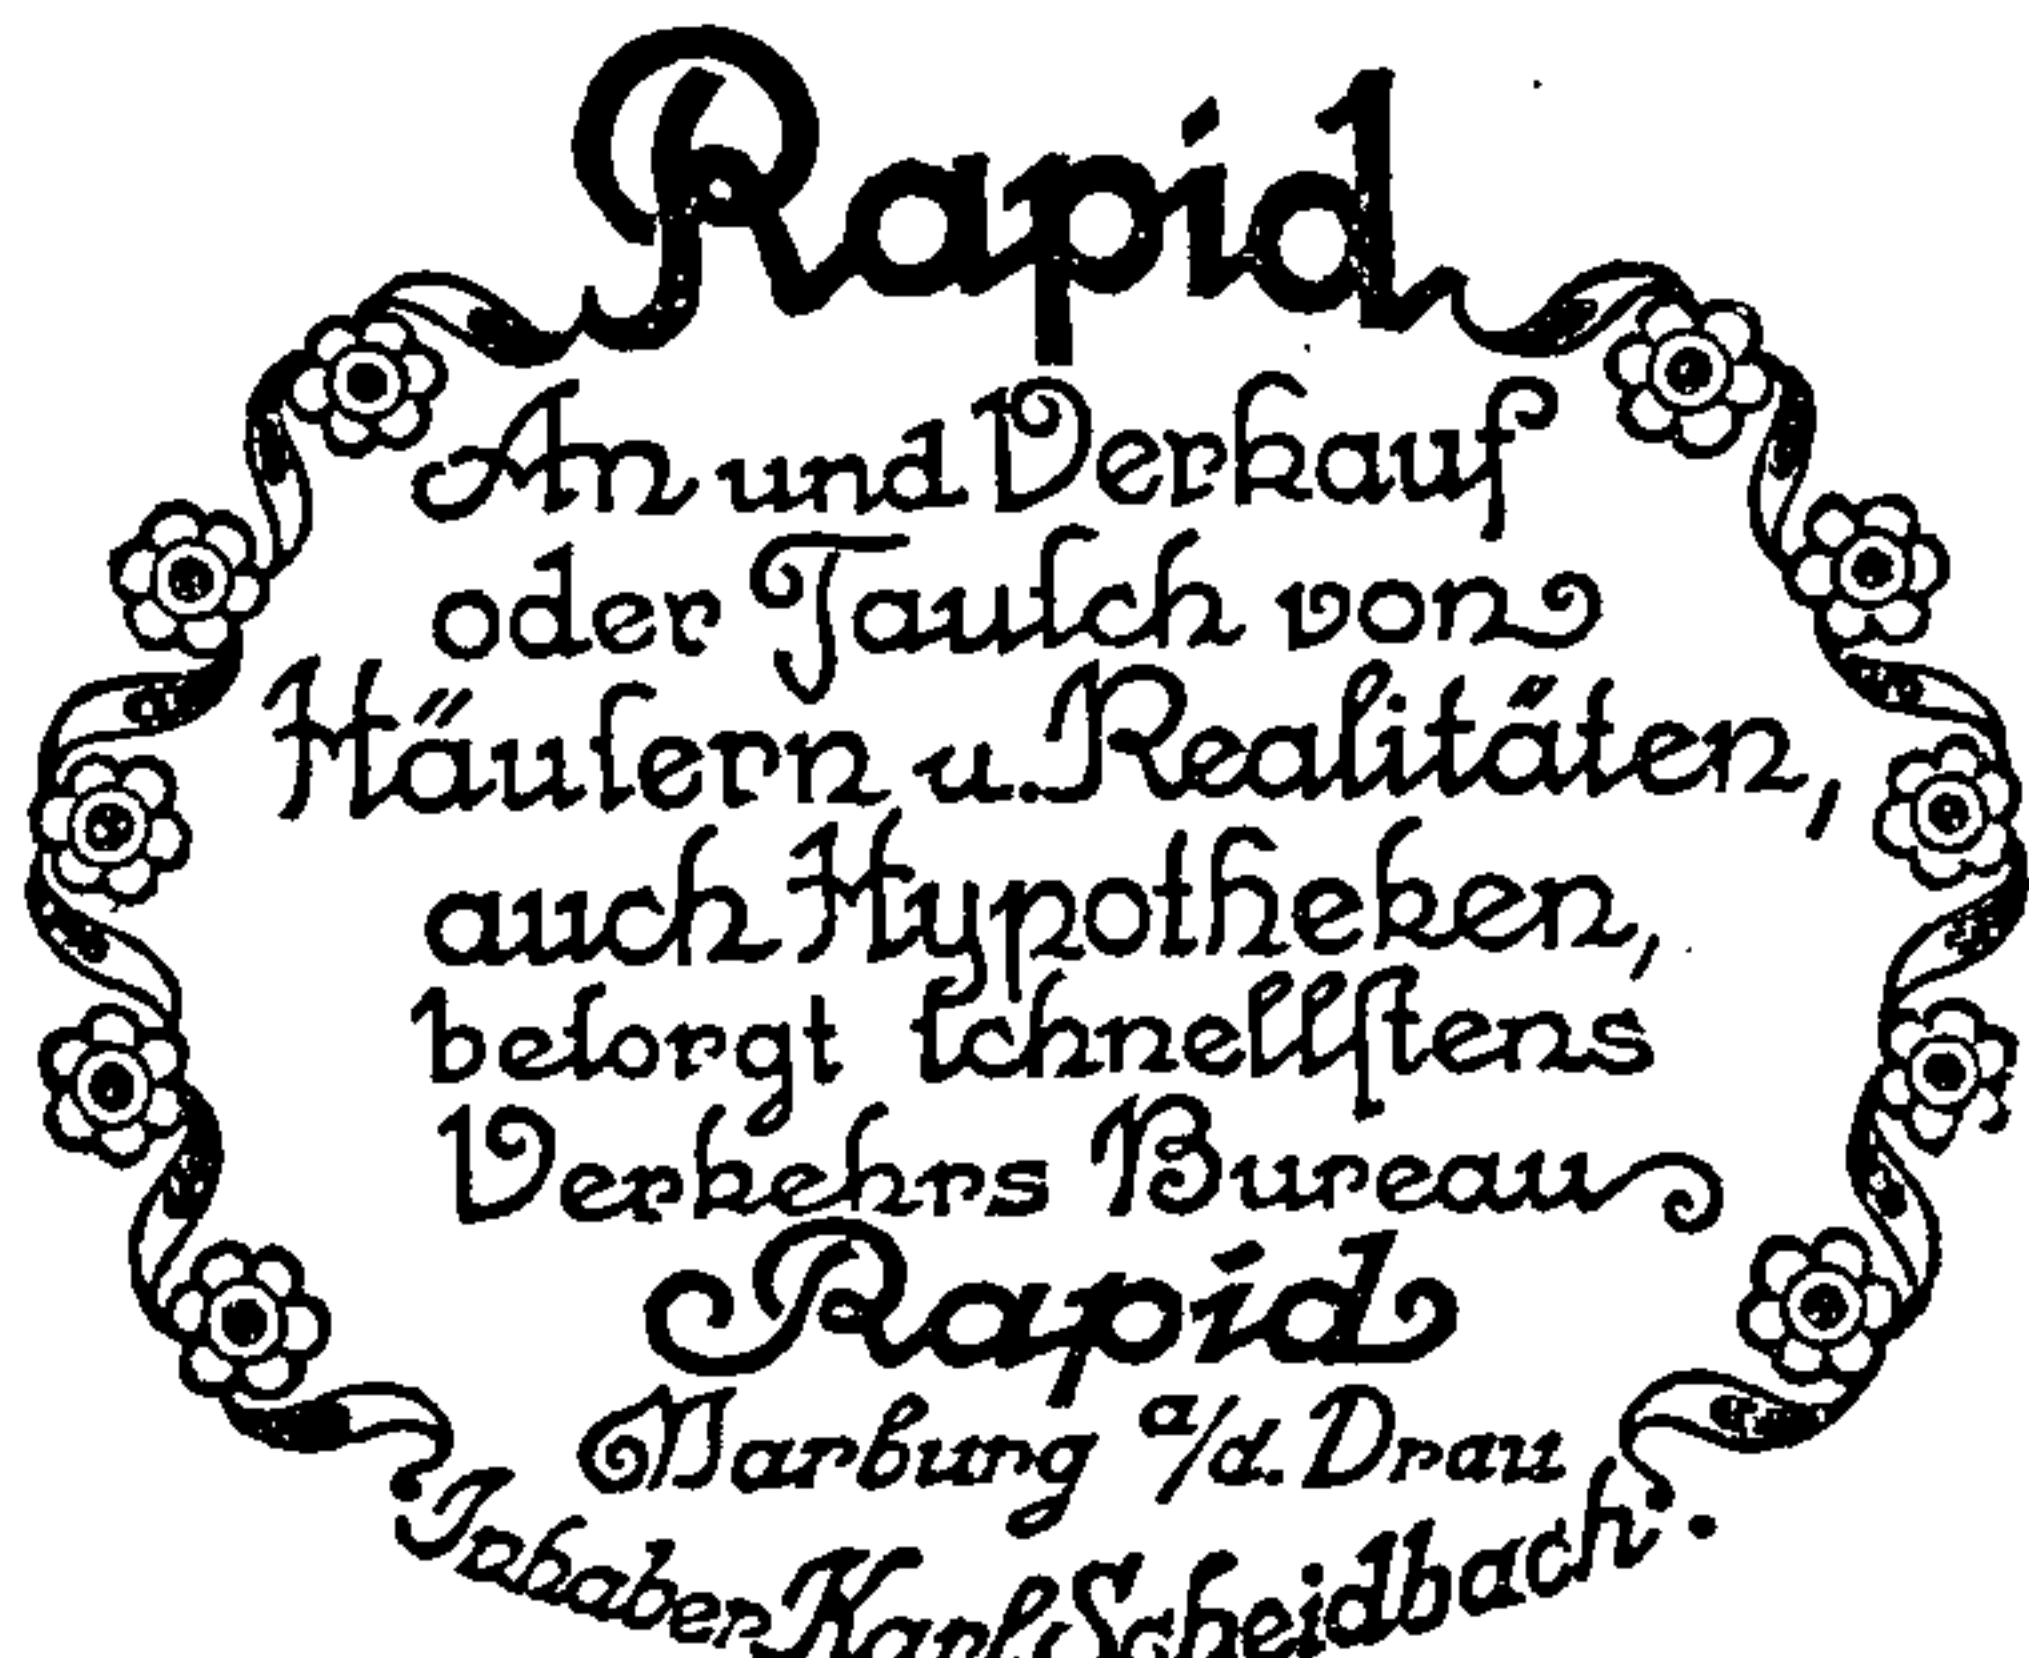 Rapid
An und Verkauf
oder Tauſch von
Häuſern u. Realitäten,
auch Hypotheken,
beſorgt ſchnellſtens
Verkehrs Bureau
Rapid
Marburg a/d. Drau
Inhaber Karl Scheidbach.